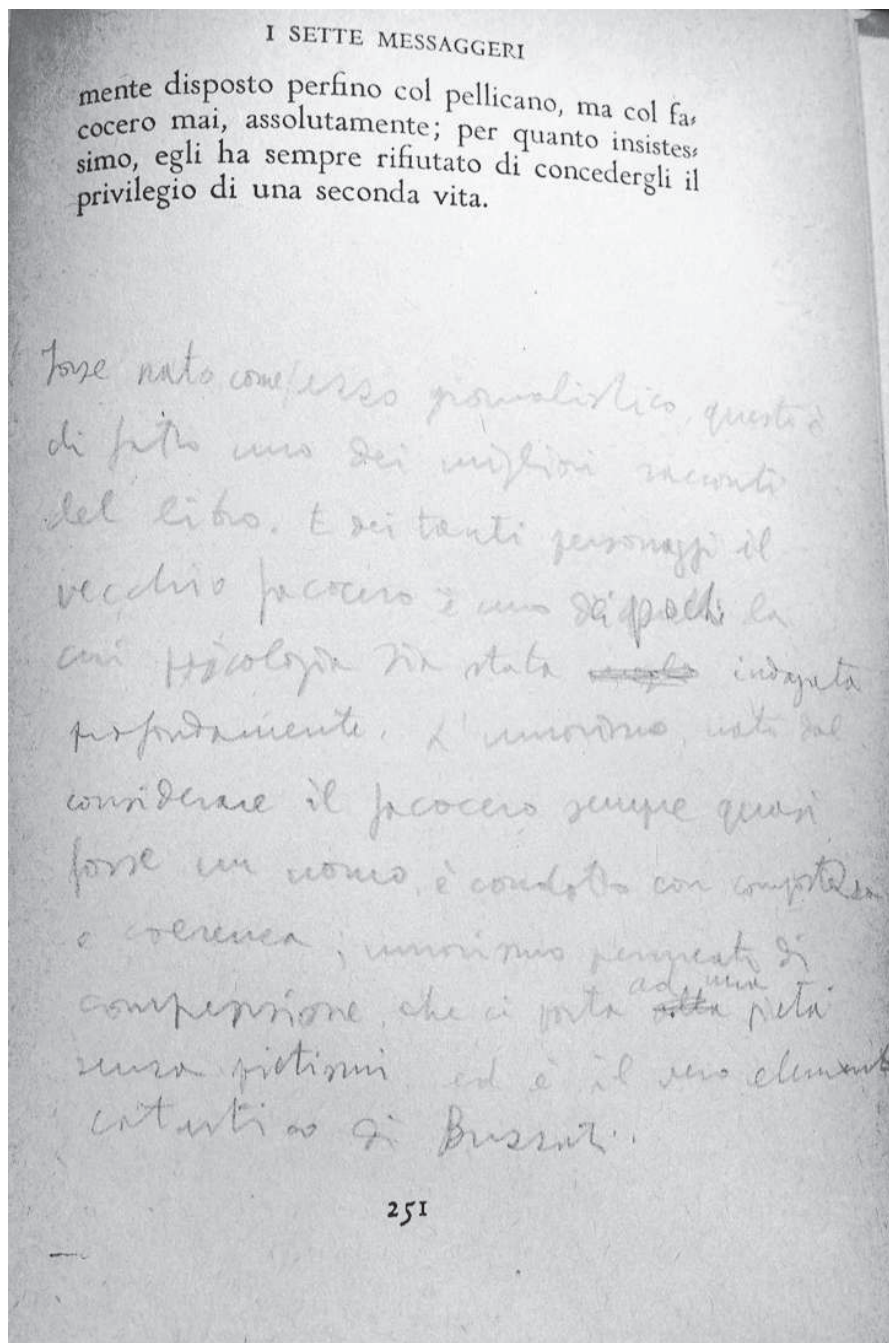 I SETTE MESSAGGERI
mente disposto perfino col pellicano, ma col fa-
cocero mai, assolutamente; per quanto insistes-
simo, egli ha sempre rifiutato di concedergli il
privilegio di una seconda vita.
Forse nato come pezzo giornalistico, questo è
di fatto uno dei migliori racconti
del libro. E dei tanti personaggi il
vecchio facocero è uno dei pochi la
cui psicologia sia stata indagata
profondamente. L'umorismo, nato dal
considerare il facocero sempre quasi
fosse un uomo, è condotto con compostezza
e coerenza; umorismo permeato di
comprensione, che ci porta ad una pietà
senza pietismi ed è il vero elemento
catartico di Buzzati.
251